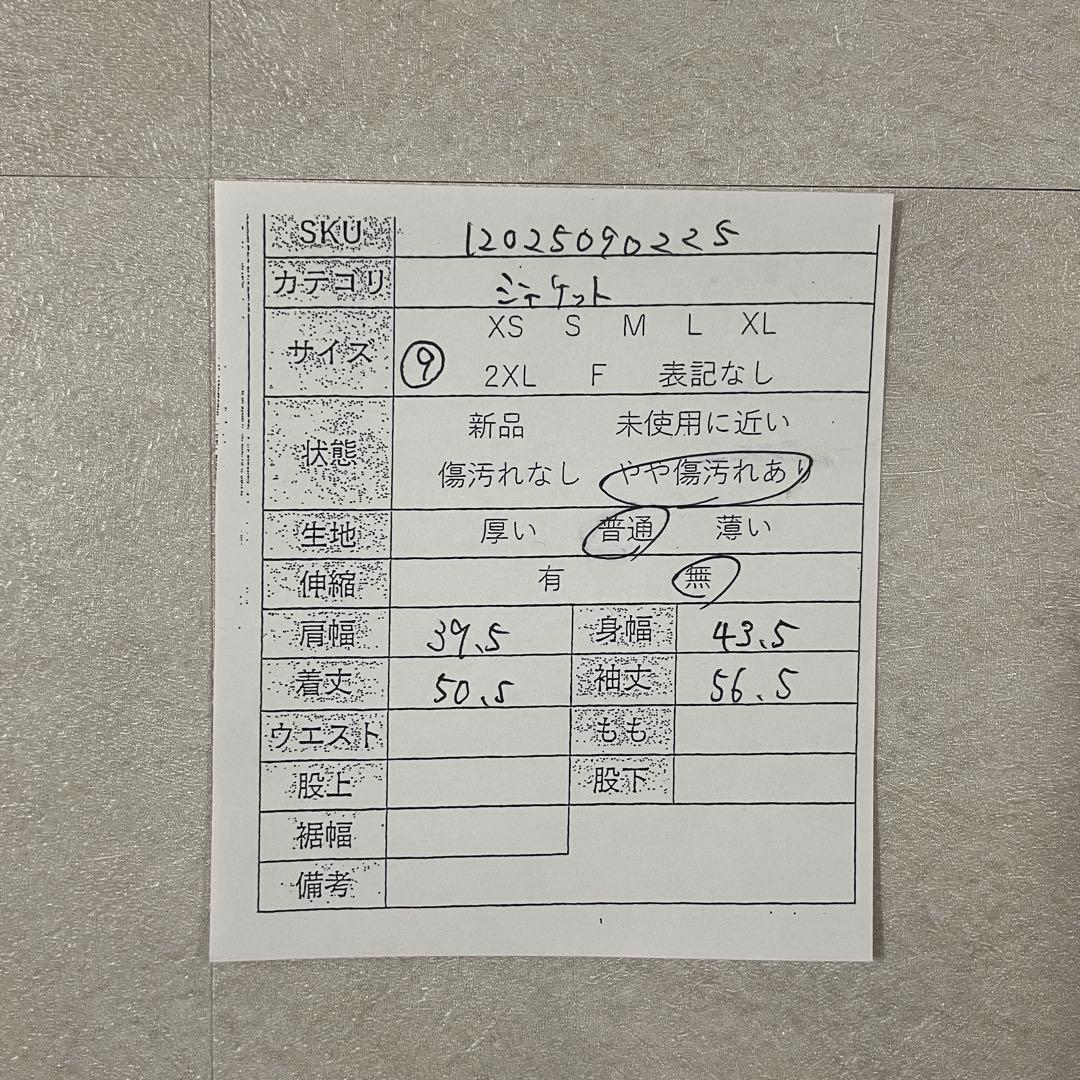 SKU 12025090225
カテゴリ ジャケット
サイズ XS S M L XL
⑨ 2XL F 表記なし
状態 新品 未使用に近い
傷汚れなし やや傷汚れあり
生地 厚い 普通 薄い
伸縮 有 無
肩幅 39.5 身幅 43.5
着丈 50.5 袖丈 56.5
ウエスト もも
股上 股下
裾幅
備考